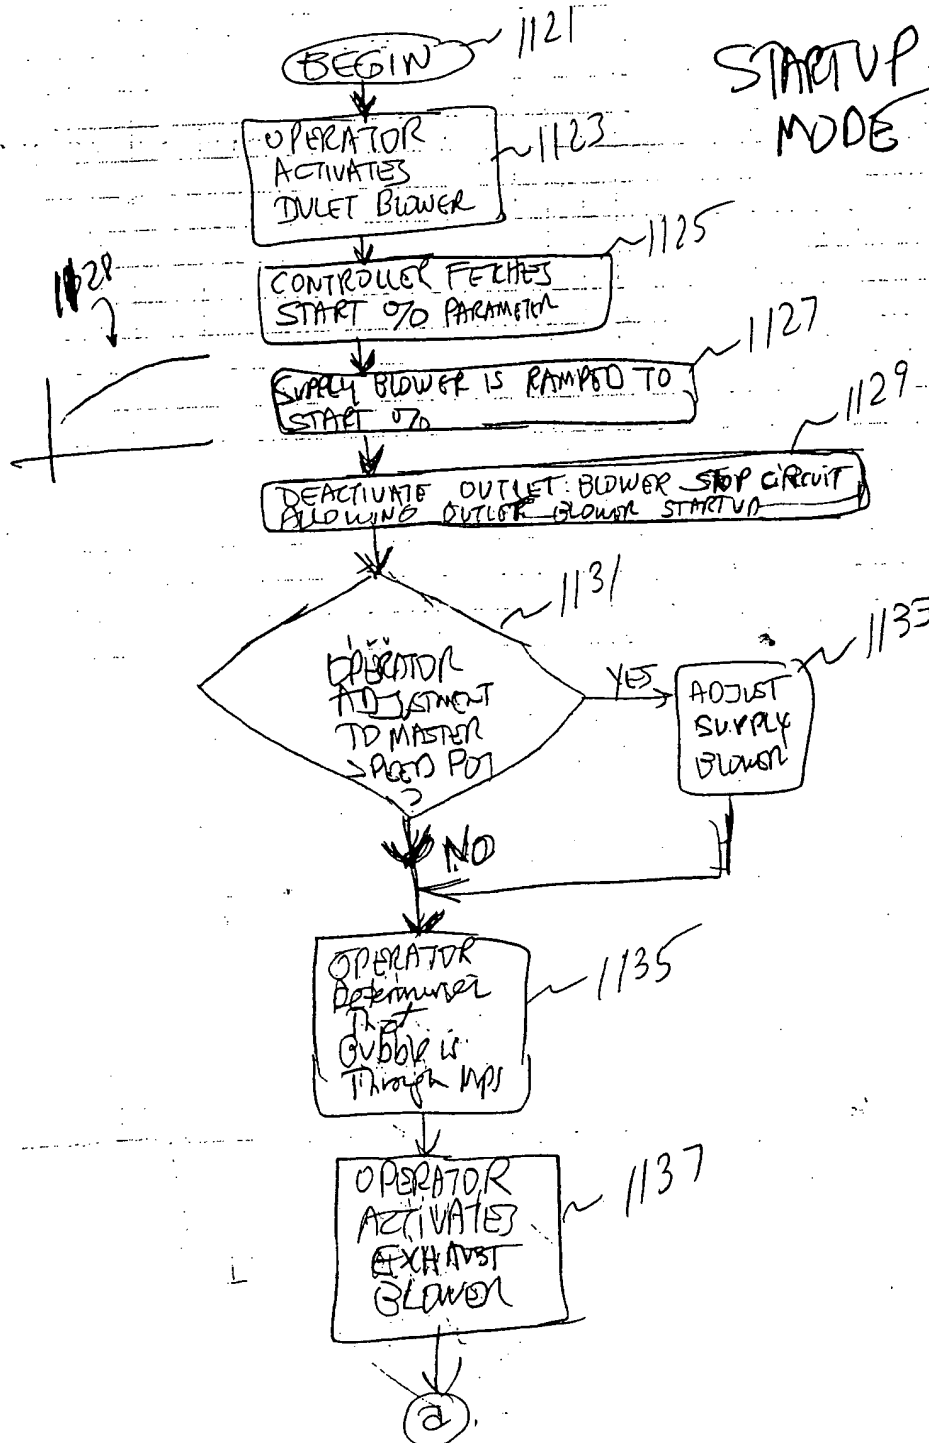 1121
STARTUP
MODE
BEGIN
OPERATOR
ACTIVATES
INLET BLOWER
1123
1125
CONTROLLER FETCHES
START % PARAMETER
1128
1127
SUPPLY BLOWER IS RAMPED TO
START %
1129
DEACTIVATE OUTLET BLOWER STOP CIRCUIT
ALLOWING OUTLET BLOWER STARTUP
1131
OPERATOR
ADJUSTMENT
TO MASTER
SPEED POT
?
YES
1133
ADJUST
SUPPLY
BLOWER
NO
OPERATOR
Determines
That
Bubble is
Through Nips
1135
OPERATOR
ACTIVATES
EXHAUST
BLOWER
1137
a